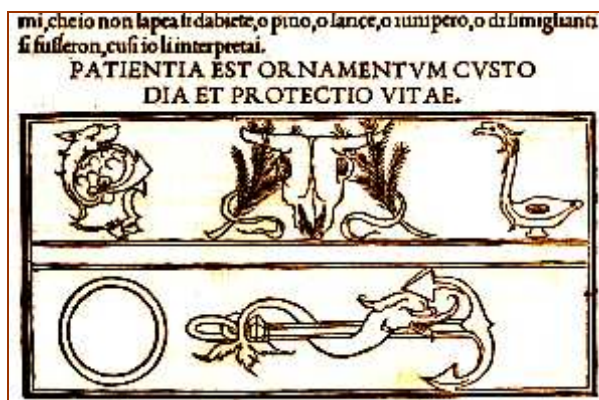 mi,che io non ſapea ſi dabiete,o pino,o larice,o iunipero,o di ſimiglianti
ſi fuſſeron,cuſi io li interpretai.
PATIENTIA EST ORNAMENTVM CVSTO
DIA ET PROTECTIO VITAE.